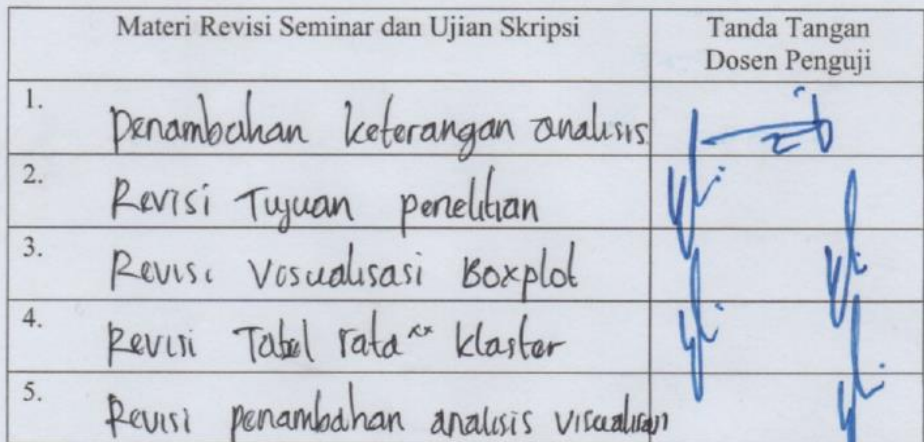 Materi Revisi Seminar dan Ujian Skripsi
Tanda Tangan
Dosen Penguji
1. Penambahan keterangan analisis
2. Revisi Tujuan penelitian
3. Revisi Visualisasi Boxplot
4. Revisi Tabel rata ^^ klaster
5. Revisi penambahan analisis visualisasi